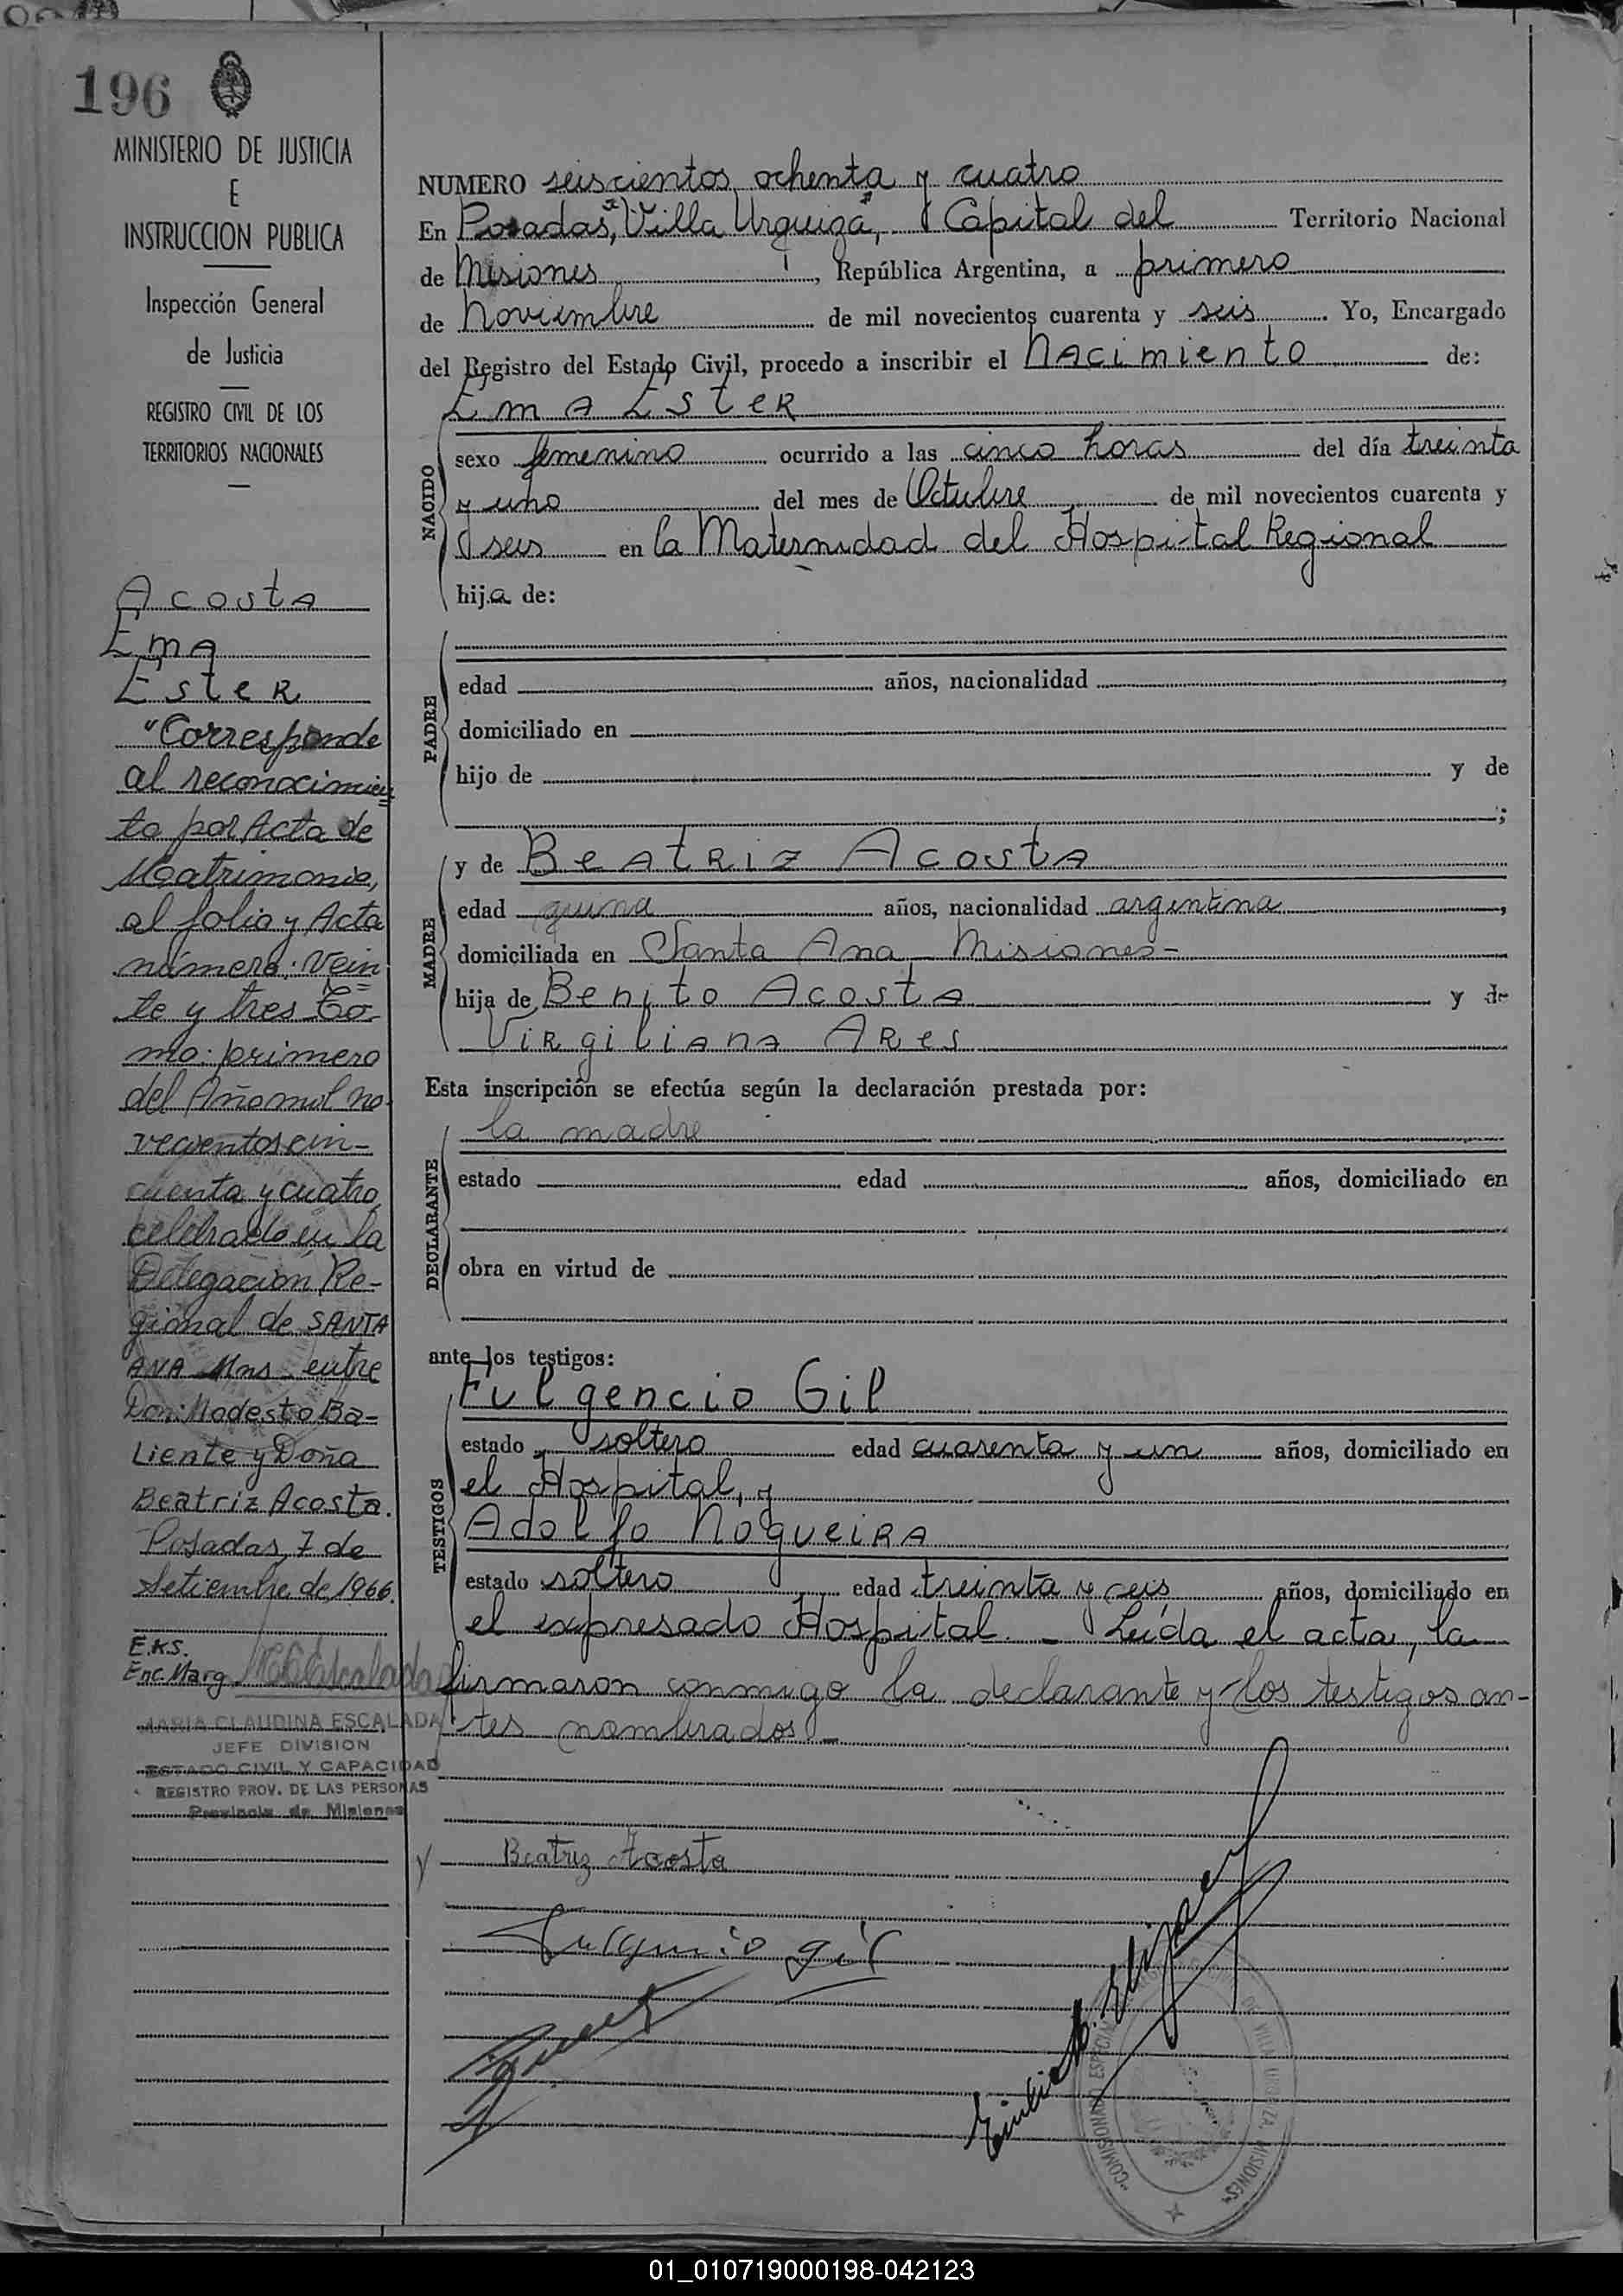 196
MINISTERIO DE JUSTICIA
E
INSTRUCCION PUBLICA
Inspección General
de Justicia
REGISTRO CIVIL DE LOS
TERRITORIOS NACIONALES
Acosta
Ema
Ester
"Corresponde
al reconocimien
to por Acta de
Matrimonio,
al folio y Acta
número: Vein
te y tres To-
mo: primero
del Año mil no-
vecientos cin-
cuenta y cuatro
celebrado en la
Delegación Re-
gional de SANTA
ANA Mns. entre
Don: Modesto Ba-
Liente y Doña
Beatriz Acosta.
Posadas, 7 de
Setiembre de 1966.
E.K.S.
Enc. Marg.
MARIA CLAUDINA ESCALADA
JEFE DIVISION
ESTADO CIVIL Y CAPACIDAD
REGISTRO PROV. DE LAS PERSONAS
Provincia de Misiones
NUMERO seiscientos ochenta y cuatro
En Posadas, "Villa Urquiza", Capital del Territorio Nacional
de Misiones, República Argentina, a primero
de Noviembre de mil novecientos cuarenta y seis. Yo, Encargado
del Registro del Estado Civil, procedo a inscribir el Nacimiento de:
Ema Ester
NACIDO
sexo femenino ocurrido a las cinco horas del día treinta
y uno del mes de Octubre de mil novecientos cuarenta y
seis en la Maternidad del Hospital Regional
hija de:
PADRE
edad años, nacionalidad ,
domiciliado en
hijo de y de
;
MADRE
y de Beatriz Acosta
edad años, nacionalidad argentina,
domiciliada en Santa Ana - Misiones-
hija de Benito Acosta y de
Virgiliana Ares
Esta inscripción se efectúa según la declaración prestada por:
DECLARANTE
la madre
estado edad años, domiciliado en
obra en virtud de
ante los testigos:
TESTIGOS
Fulgencio Gil
estado soltero edad cuarenta y un años, domiciliado en
el Hospital, y
Adolfo Nogueira
estado soltero edad treinta y seis años, domiciliado en
el expresado Hospital. - Leída el acta, la
firmaron conmigo la declarante y los testigos an-
tes nombrados -
Beatriz Acosta
Fulgencio Gil
01_010719000198-042123